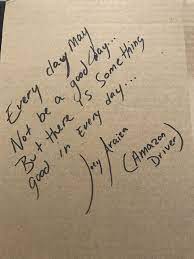 Every day May
Not be a good day...
But there is Something
good in Every day...
Araiza
(Amazon
Driver)